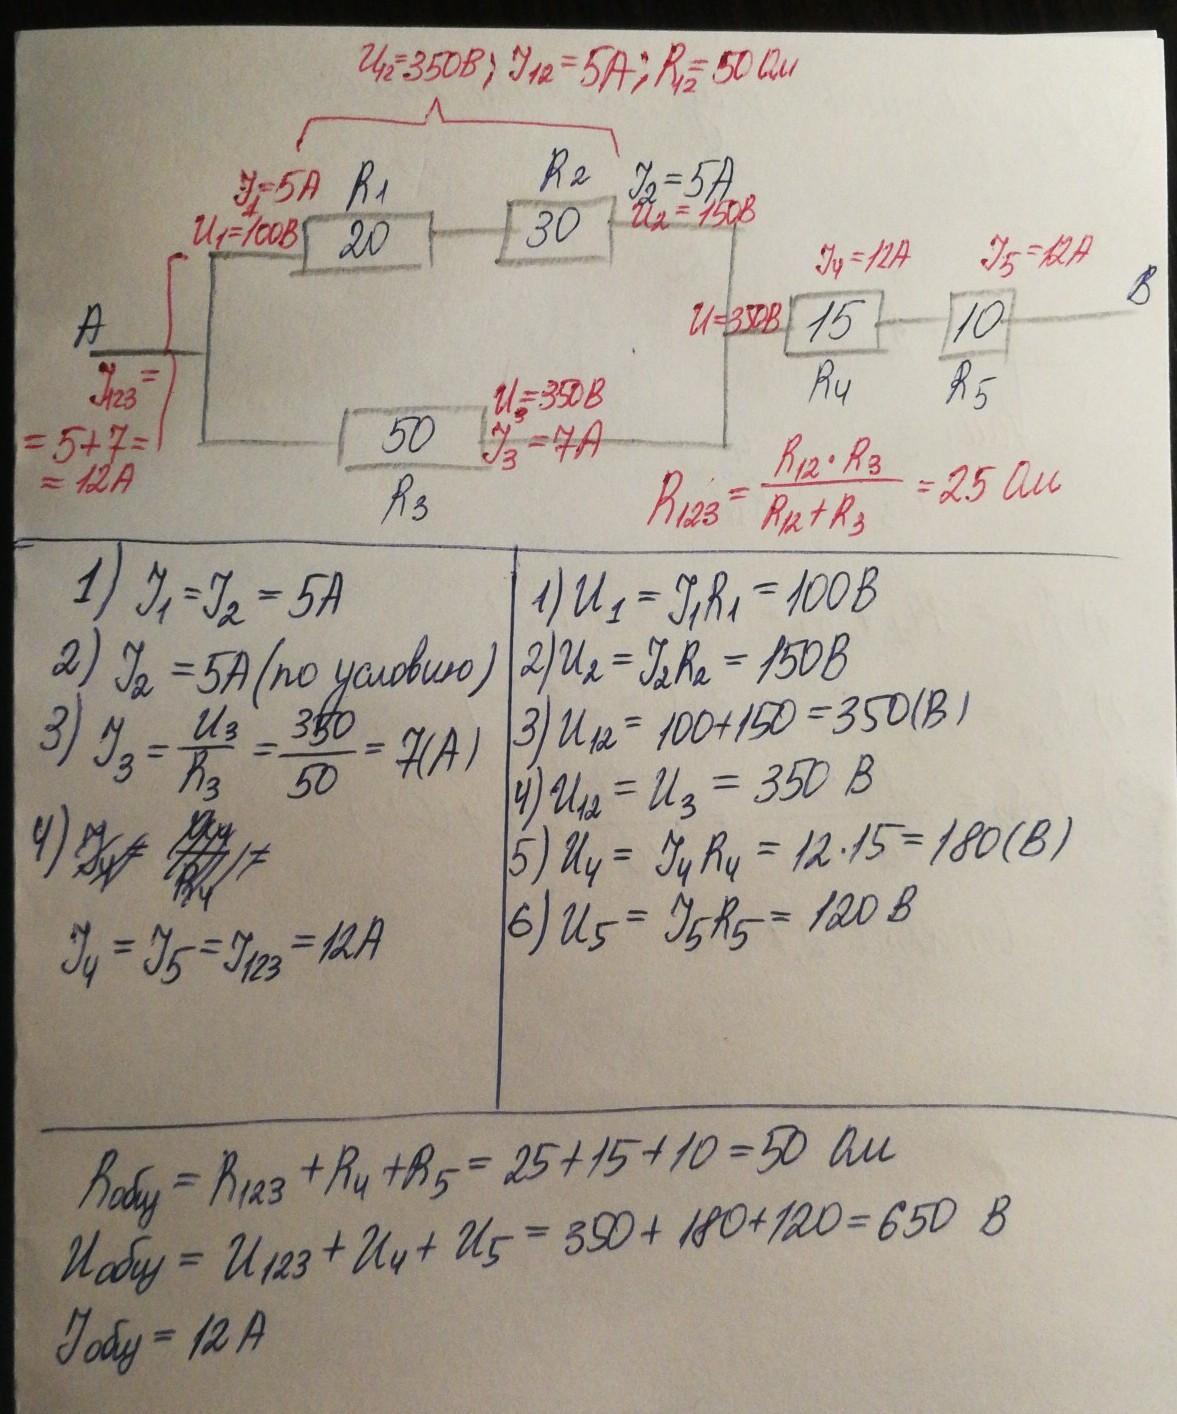 U12=350В; J12=5А; R12=50 Ом
J1=5А R1 R2 J2=5А
U1=100В 20 30 U2=150В
J4=12А J5=12А
A U=350В 15 10 B
R4 R5
J123=
=5+7=
=12А
U3=350В
50 J3=7А
R3
R123 = R12·R3 / R12+R3 = 25 Ом
1) J1=J2=5А
2) J2=5А (по условию)
3) J3 = U3/R3 = 350/50 = 7(А)
4)
J4=J5=J123=12А
1) U1=J1R1=100В
2) U2=J2R2=150В
3) U12=100+150=350(В)
4) U12=U3=350 В
5) U4=J4R4=12·15=180(В)
6) U5=J5R5=120 В
Rобщ=R123+R4+R5=25+15+10=50 Ом
Uобщ=U123+U4+U5=350+180+120=650 В
Jобщ=12 А